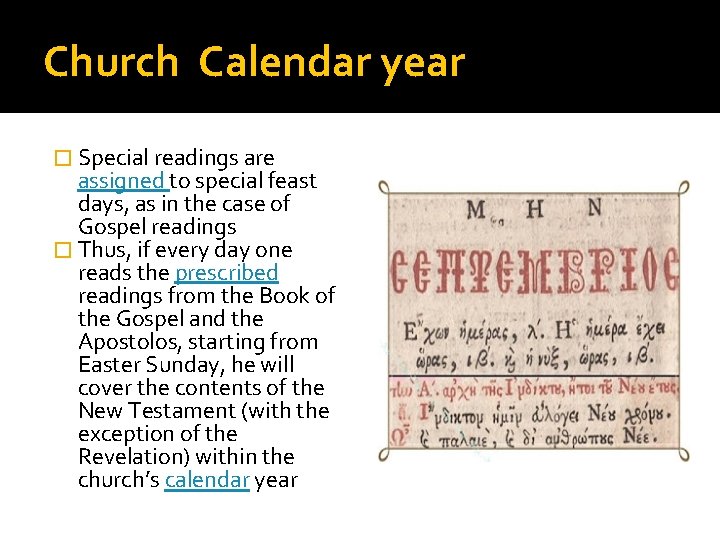 Church Calendar year
Special readings are
assigned to special feast
days, as in the case of
Gospel readings
Thus, if every day one
reads the prescribed
readings from the Book of
the Gospel and the
Apostolos, starting from
Easter Sunday, he will
cover the contents of the
New Testament (with the
exception of the
Revelation) within the
church’s calendar year
Μ Η Ν
ϹΕΠΤΕΜΒΡΙΟϹ
Ἔχων ἡμέρας, λ. Ἡ ἡμέρα ἔχει
ὥρας, ιβ. κὶ ἡ νὺξ, ὥρας, ιβ.
τῶν Α. ἀρχὴ τῆς Ἰνδίκτυ, ἤτοι τῦ Νέυ ἔτυς.
Ἴνδικτον ἡμῖν Νέυ χρόνυ.
ἀνθρώπυς Νέε.